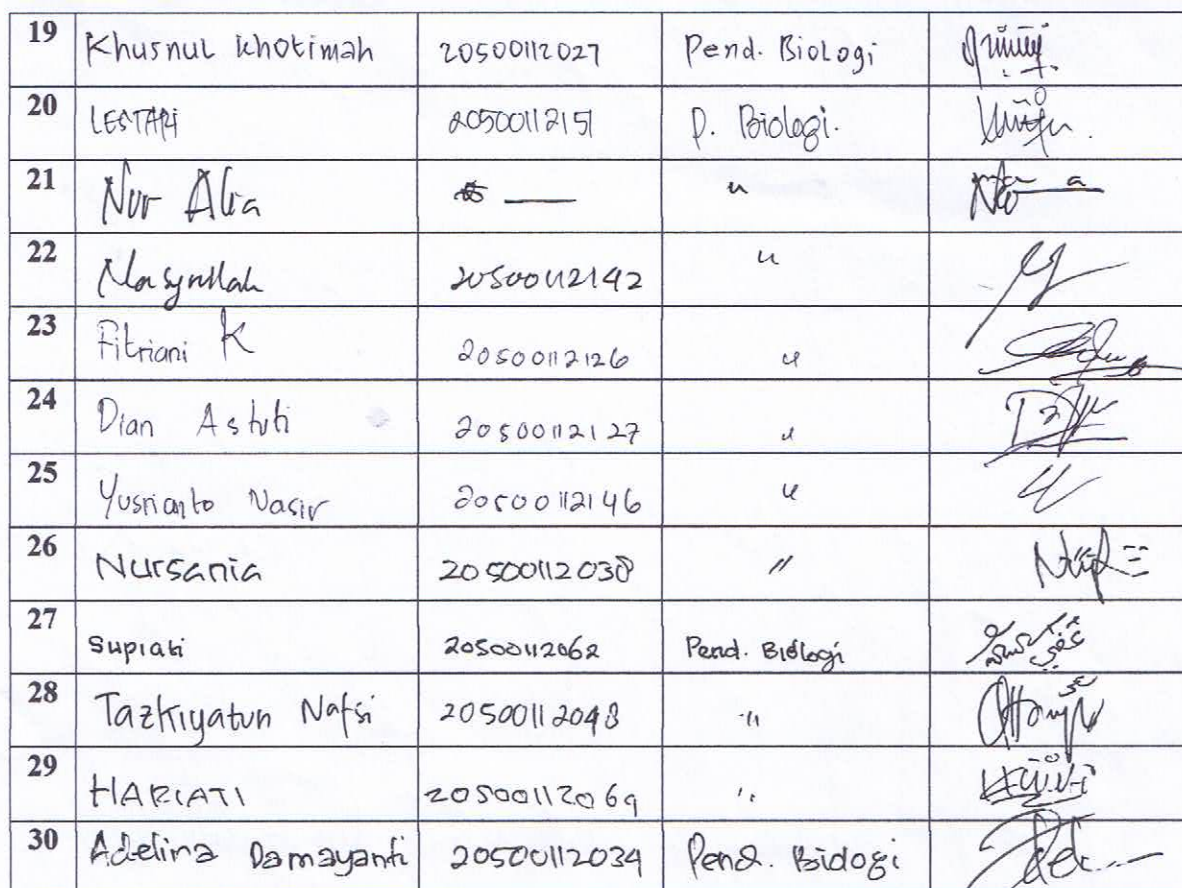 19 Khusnul Khotimah 20500112027 Pend. Biologi
20 LESTARI 20500112151 P. Biologi.
21 Nur Alia — "
22 Nasyrullah 20500112142 "
23 Fitriani K 20500112126 "
24 Dian Astuti 20500112127 "
25 Yusrianto Nasir 20500112146 "
26 Nursania 20500112038 "
27 Supiati 20500112062 Pend. Biologi
28 Tazkiyatun Nafsi 20500112048 "
29 HARIATI 20500112069 "
30 Adelina Damayanti 20500112034 Pend. Biologi